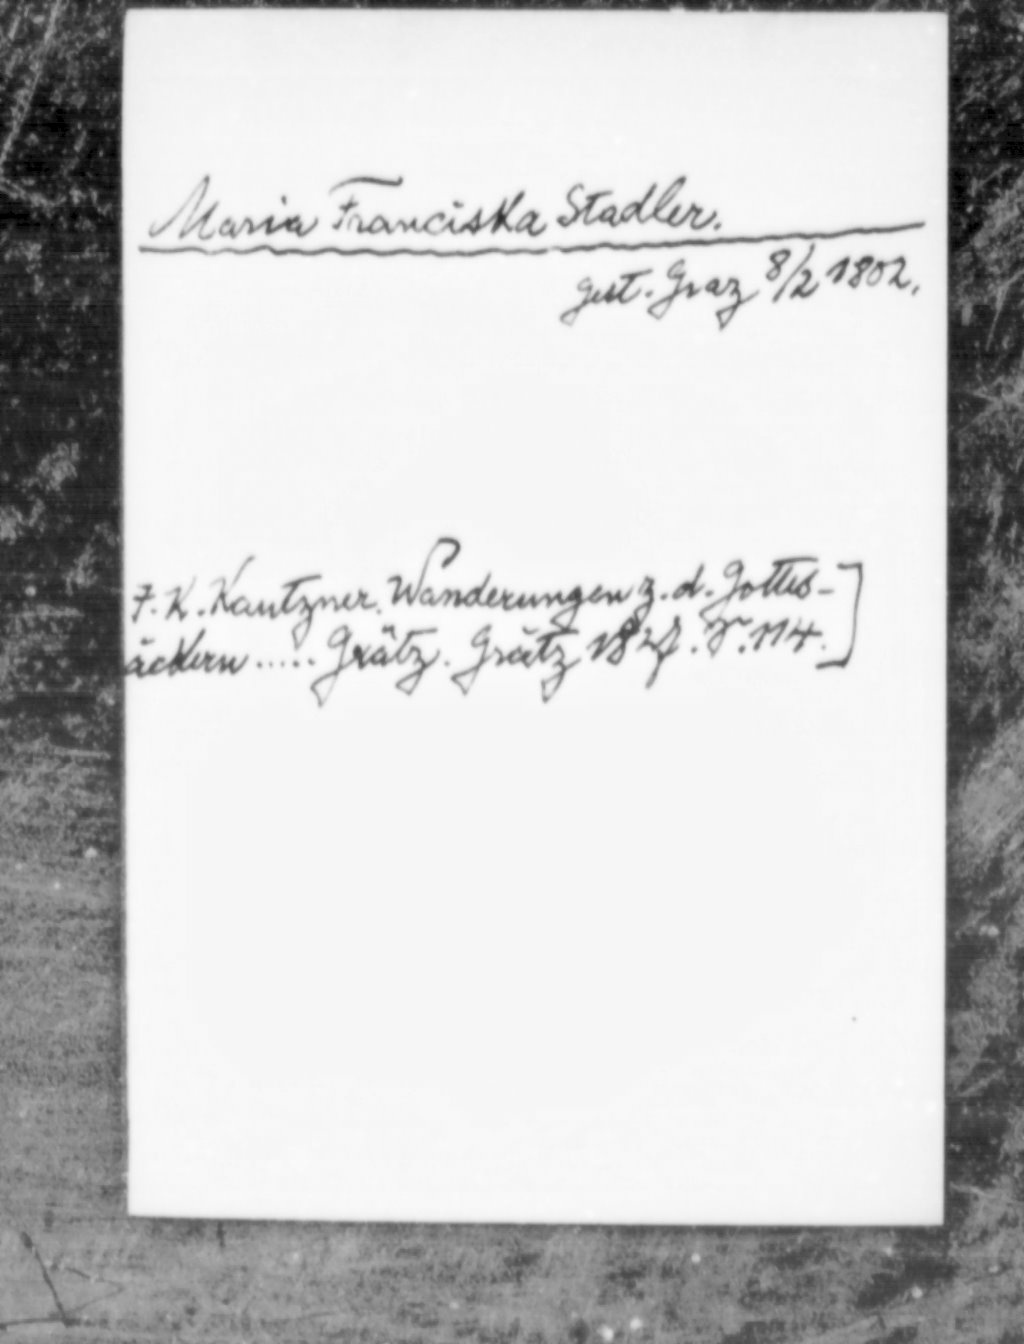 Maria Franciska Stadler.
gest. Graz 8/2 1802.
F. K. Kautzner. Wanderungen z. d. Gottes-
äckern ..... Grätz. Grätz S. 114.]